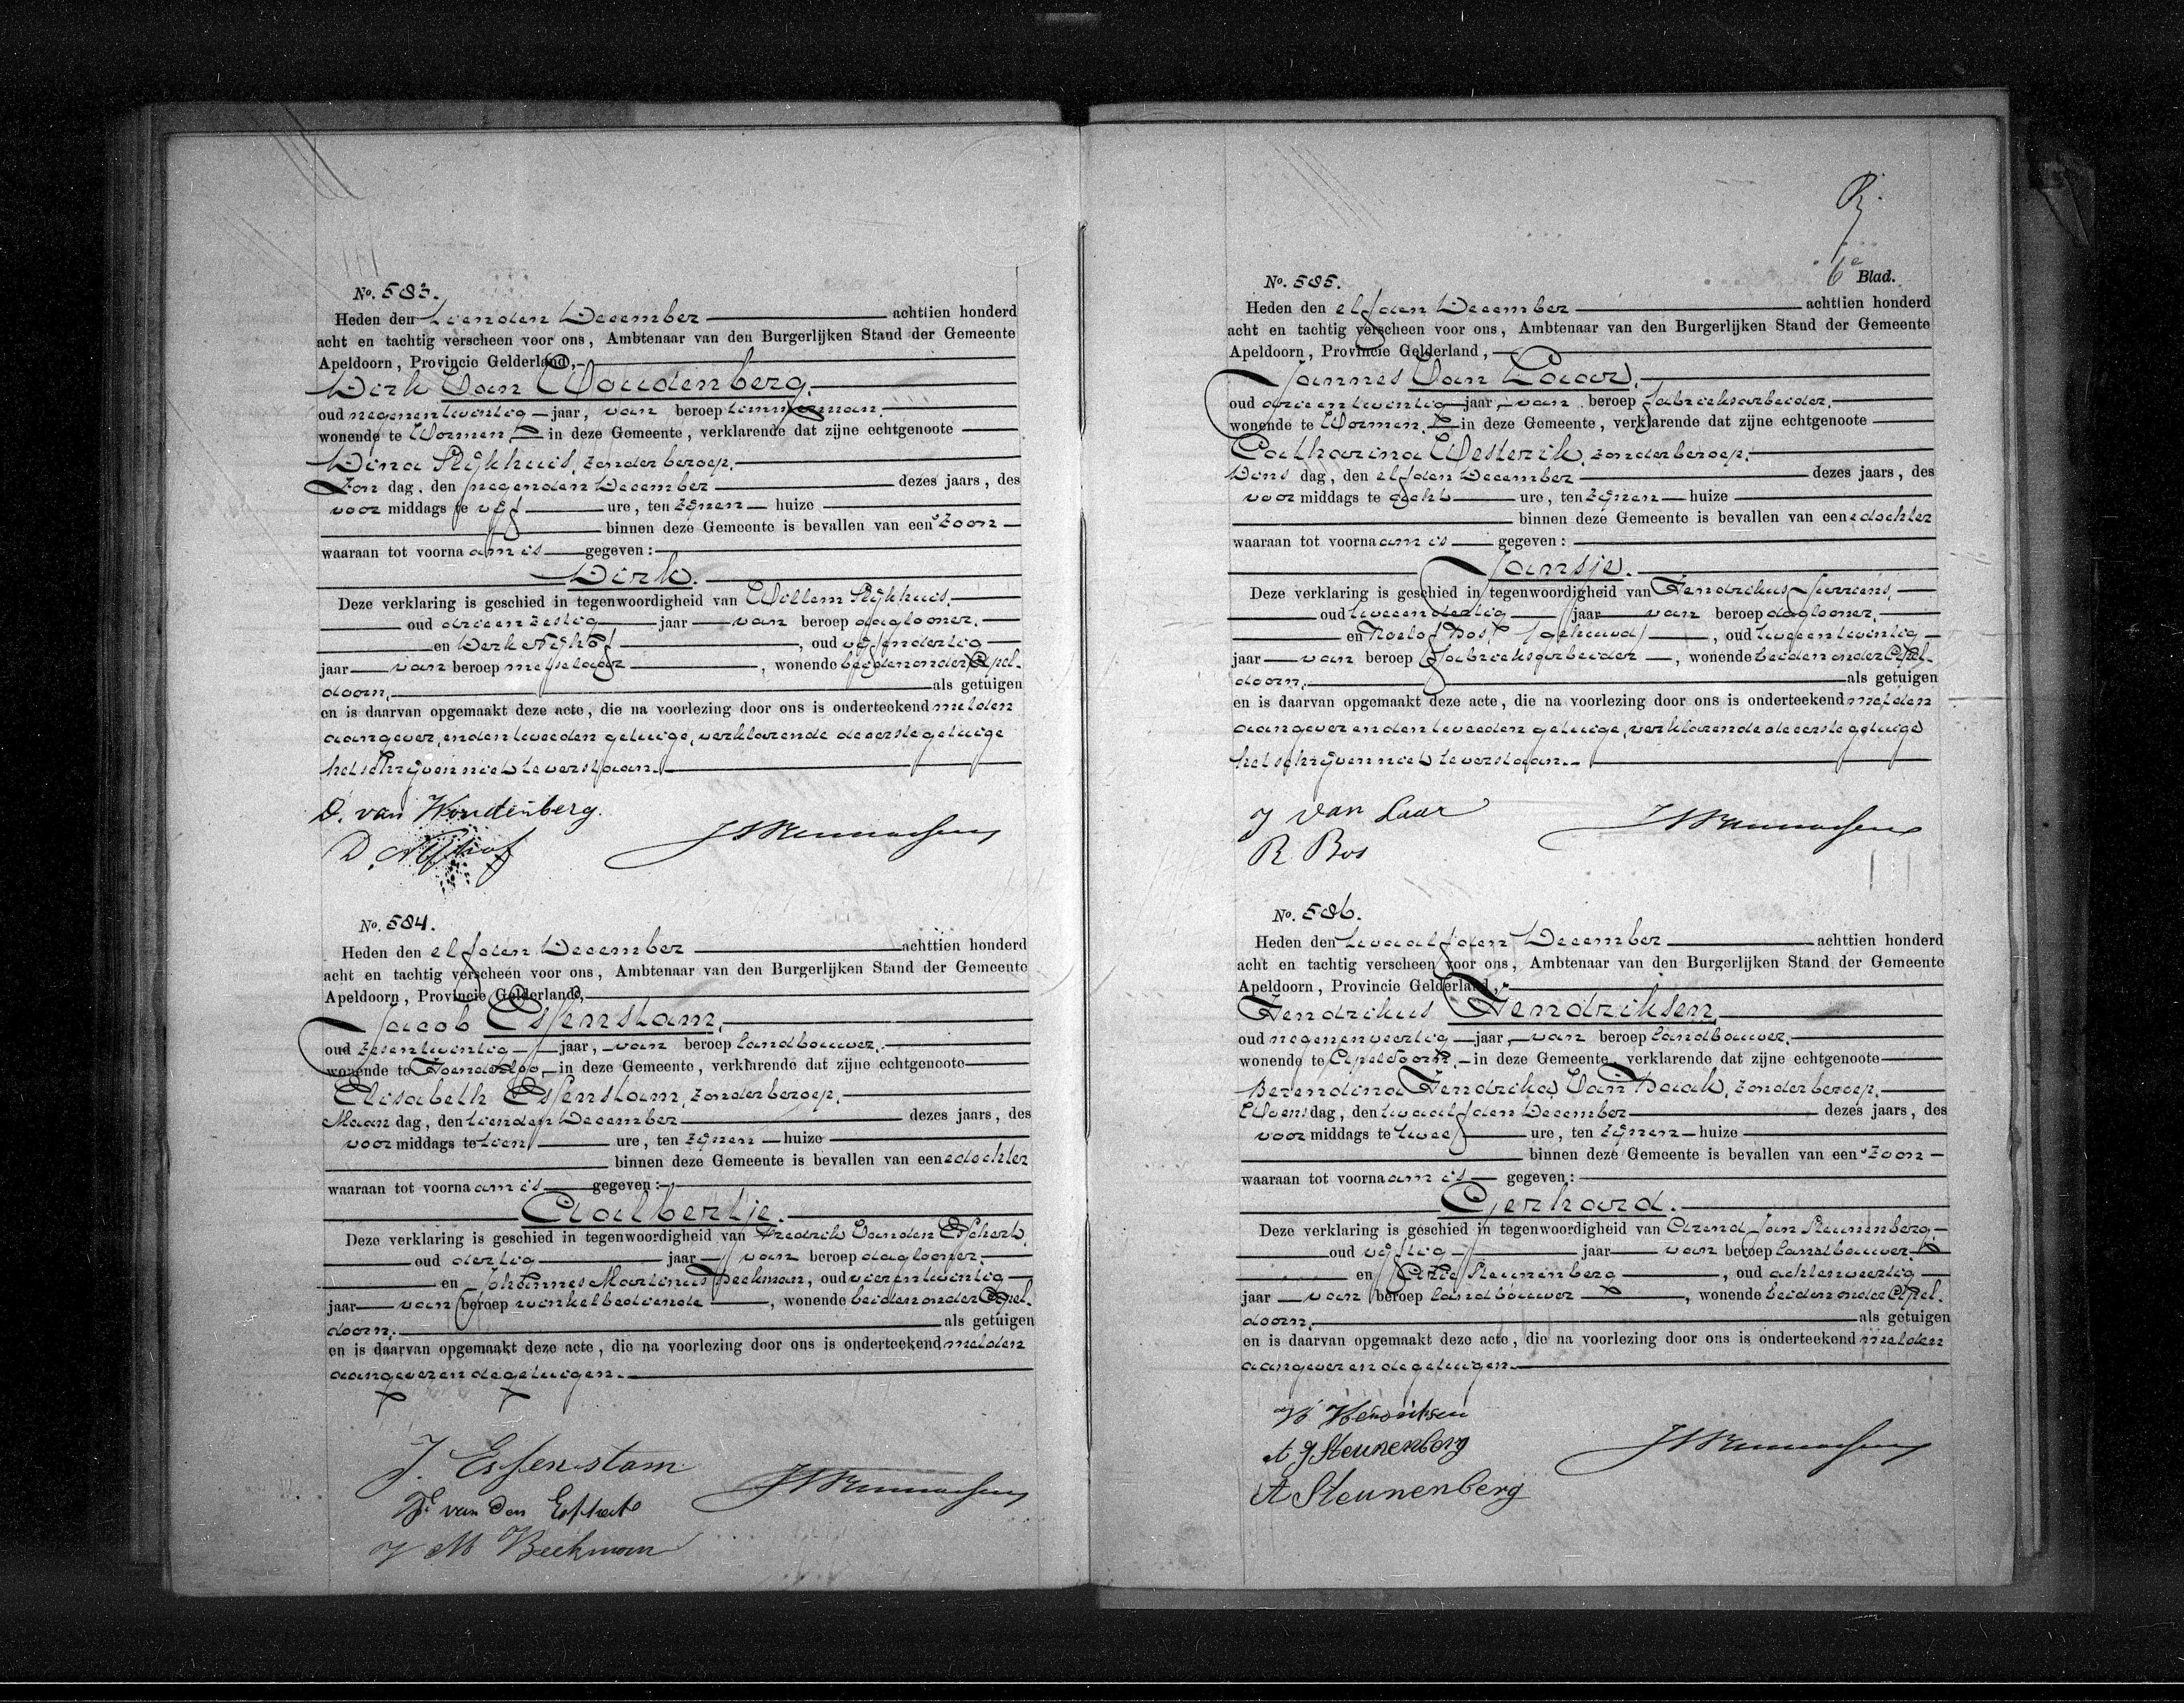 No. 583.
Heden den tienden December achttien honderd
acht en tachtig verscheen voor ons, Ambtenaar van den Burgerlijken Stand der Gemeente
Apeldoorn, Provincie Gelderland,
Dirk Van Woudenberg.
oud negenentwintig jaar, van beroep timmerman.
wonende te Wormen, in deze Gemeente, verklarende dat zijne echtgenoote
Dina Slijkhuis, zonder beroep.
Zon dag, den negenden December dezes jaars, des
voor middags te vijf ure, ten zijnen huize
binnen deze Gemeente is bevallen van een zoon
waaraan tot voornaam is gegeven:
Dirk.
Deze verklaring is geschied in tegenwoordigheid van Willem Slijkhuis,
oud drieenzestig jaar van beroep daglooner,
en Derk Nijhof, oud vijfendertig
jaar van beroep metselaar, wonende beiden onder Apel-
doorn, als getuigen
en is daarvan opgemaakt deze acte, die na voorlezing door ons is onderteekend met den
aangever, en den tweeden getuige, verklarende de eerste getuige
het schrijven niet te verstaan.
D. van Woudenberg.
D. Nijhof
No. 584.
Heden den elfden December achttien honderd
acht en tachtig verscheen voor ons, Ambtenaar van den Burgerlijken Stand der Gemeente
Apeldoorn, Provincie Gelderland,
Jacob Essenstam,
oud zesentwintig jaar, van beroep landbouwer,
wonende te Hoenderloo, in deze Gemeente, verklarende dat zijne echtgenoote
Elisabeth Essenstam, zonder beroep.
Maan dag, den tienden December dezes jaars, des
voor middags te tien ure, ten zijnen huize
binnen deze Gemeente is bevallen van eene dochter
waaraan tot voornaam is gegeven:
Aalbertje.
Deze verklaring is geschied in tegenwoordigheid van Fredrik Van den Esschert,
oud dertig jaar van beroep daglooner,
en Johannes Martinus Beekman, oud vierentwintig
jaar van beroep winkelbediende, wonende beiden onder Apel-
doorn, als getuigen
en is daarvan opgemaakt deze acte, die na voorlezing door ons is onderteekend met den
aangever en de getuigen.
J. Essenstam
F. van den Esschert
J M Beekman
6e Blad.
No. 585.
Heden den elfden December achttien honderd
acht en tachtig verscheen voor ons, Ambtenaar van den Burgerlijken Stand der Gemeente
Apeldoorn, Provincie Gelderland,
Jannes Van Laar,
oud drieentwintig jaar, van beroep fabrieksarbeider,
wonende te Wormen, in deze Gemeente, verklarende dat zijne echtgenoote
Catharina Westerik, zonder beroep.
Dins dag, den elfden December dezes jaars, des
voor middags te acht ure, ten zijnen huize
binnen deze Gemeente is bevallen van eene dochter
waaraan tot voornaam is gegeven:
Jansje.
Deze verklaring is geschied in tegenwoordigheid van Hendrikus Jurriens,
oud tweeendertig jaar van beroep daglooner,
en Roelof Bos, oud tweeentwintig
jaar van beroep fabrieksarbeider, wonende beiden onder Apel-
doorn, als getuigen
en is daarvan opgemaakt deze acte, die na voorlezing door ons is onderteekend met den
aangever en den tweeden getuige, verklarende de eerste getuige
het schrijven niet te verstaan.
J van Laar
R Bos
No. 586.
Heden den twaalfden December achttien honderd
acht en tachtig verscheen voor ons, Ambtenaar van den Burgerlijken Stand der Gemeente
Apeldoorn, Provincie Gelderland,
Hendrikus Hendriksen,
oud negenenveertig jaar, van beroep landbouwer,
wonende te Apeldoorn, in deze Gemeente, verklarende dat zijne echtgenoote
Berendina Hendrika Van Baak, zonder beroep.
Woens dag, den twaalfden December dezes jaars, des
voor middags te twee ure, ten zijnen huize
binnen deze Gemeente is bevallen van een zoon
waaraan tot voornaam is gegeven:
Gerhard.
Deze verklaring is geschied in tegenwoordigheid van Arend Jan Steunenberg
oud vijftig jaar van beroep landbouwer
en Arie Steunenberg, oud achtenveertig
jaar van beroep landbouwer, wonende beiden onder Apel-
doorn, als getuigen
en is daarvan opgemaakt deze acte, die na voorlezing door ons is onderteekend met den
aangever en de getuigen.
H Hendriksen
A J Steunenberg
A Steunenberg